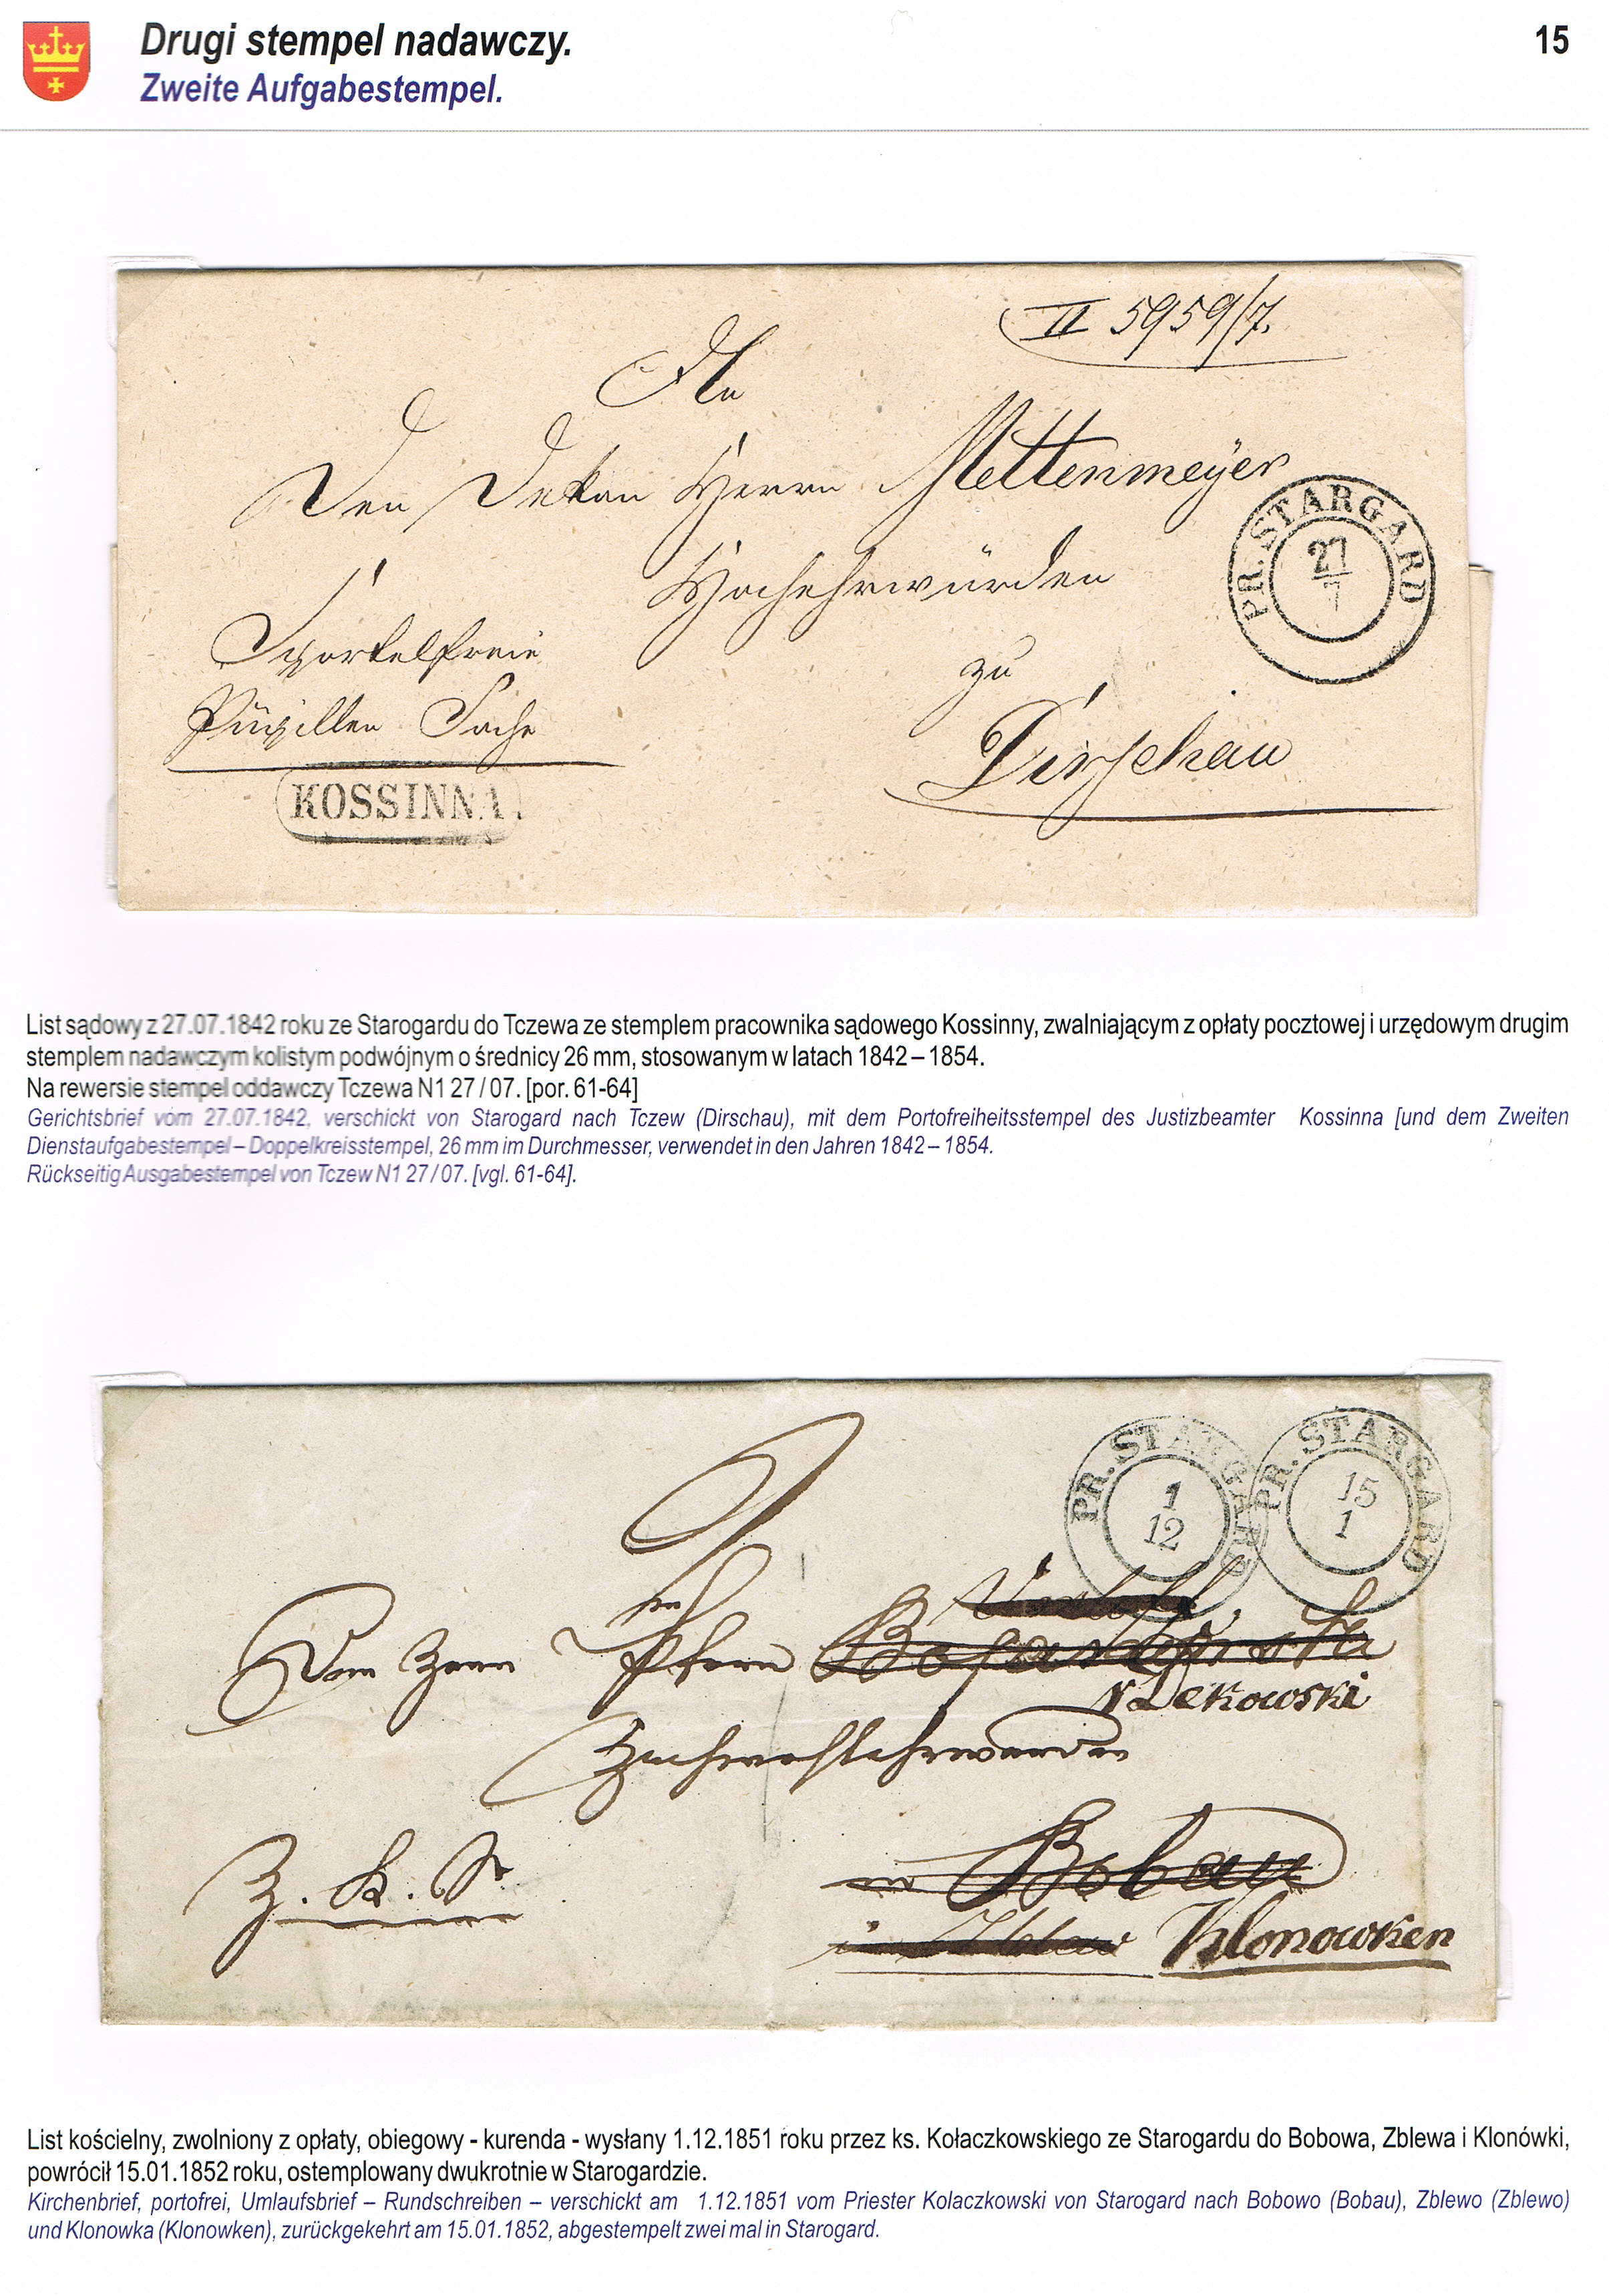 Drugi stempel nadawczy.
15
Zweite Aufgabestempel.
II 5959/7.
An
Den Dekan Herrn Mettenmeyer
PR. STARGARD
27
7
Hochehrwürden
Sportelfreie
zu
Pupillen Sache
Dirschau
KOSSINNA.
List sądowy z 27.07.1842 roku ze Starogardu do Tczewa ze stemplem pracownika sądowego Kossinny, zwalniającym z opłaty pocztowej i urzędowym drugim
stemplem nadawczym kolistym podwójnym o średnicy 26 mm, stosowanym w latach 1842 – 1854.
Na rewersie stempel oddawczy Tczewa N1 27 / 07. [por. 61-64]
Gerichtsbrief vom 27.07.1842, verschickt von Starogard nach Tczew (Dirschau), mit dem Portofreiheitsstempel des Justizbeamter Kossinna [und dem Zweiten
Dienstaufgabestempel – Doppelkreisstempel, 26 mm im Durchmesser, verwendet in den Jahren 1842 – 1854.
Rückseitig Ausgabestempel von Tczew N1 27 / 07. [vgl. 61-64].
PR. STARGARD
1
12
PR. STARGARD
15
1
Pfarrer
v Dekowski
Bobau
Klonowken
List kościelny, zwolniony z opłaty, obiegowy - kurenda - wysłany 1.12.1851 roku przez ks. Kołaczkowskiego ze Starogardu do Bobowa, Zblewa i Klonówki,
powrócił 15.01.1852 roku, ostemplowany dwukrotnie w Starogardzie.
Kirchenbrief, portofrei, Umlaufsbrief – Rundschreiben – verschickt am 1.12.1851 vom Priester Kolaczkowski von Starogard nach Bobowo (Bobau), Zblewo (Zblewo)
und Klonowka (Klonowken), zurückgekehrt am 15.01.1852, abgestempelt zwei mal in Starogard.